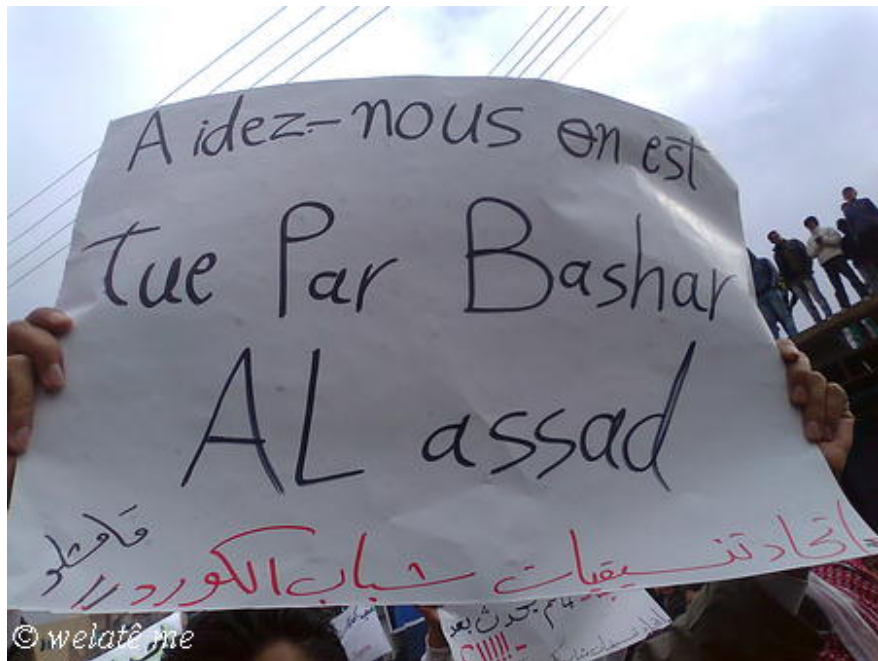 Aidez-nous on est
tue Par Bashar
AL assad
اتحاد تنسيقيات شباب الكورد // قامشلو
يحدث بعد
!!!!!؟
© welatê me